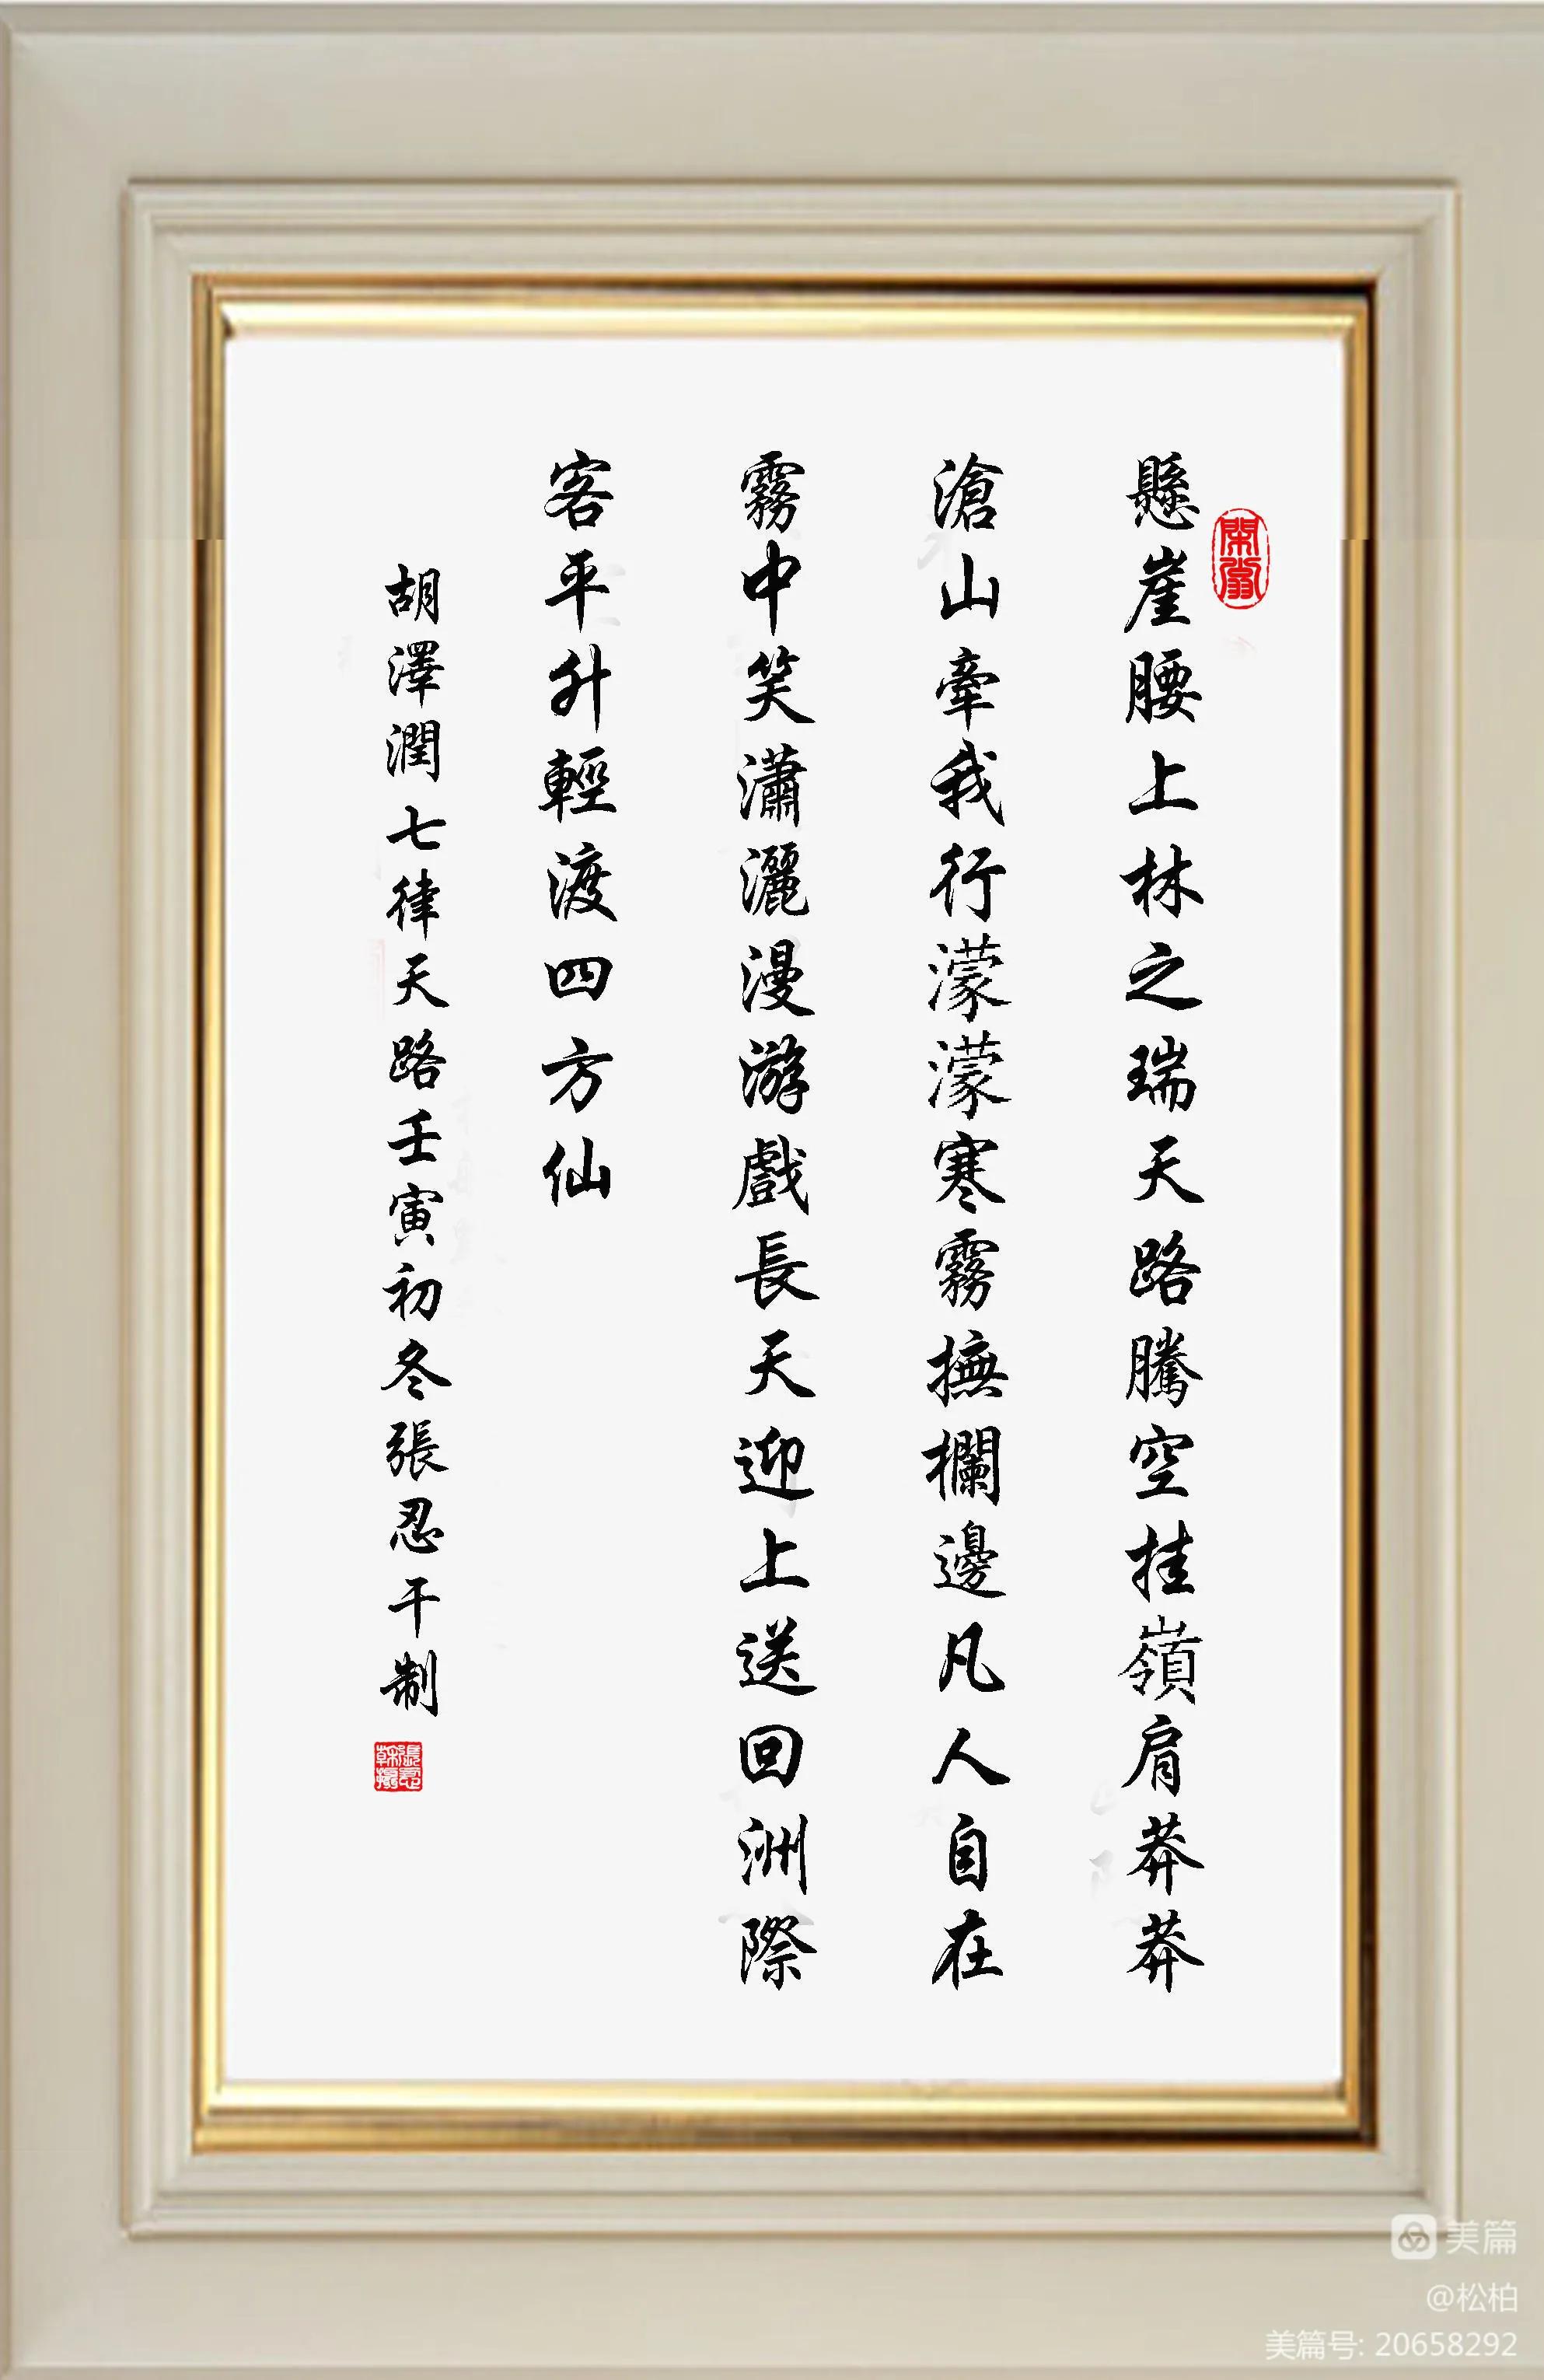 懸崖腰上林之瑞天路騰空挂嶺肩莽莽
滄山牽我行濛濛寒霧撫欄邊凡人自在
霧中笑瀟灑漫游戲長天迎上送回洲際
客平升輕渡四方仙
胡澤潤七律天路壬寅初冬張忍干制
美篇
@松柏
美篇号: 20658292